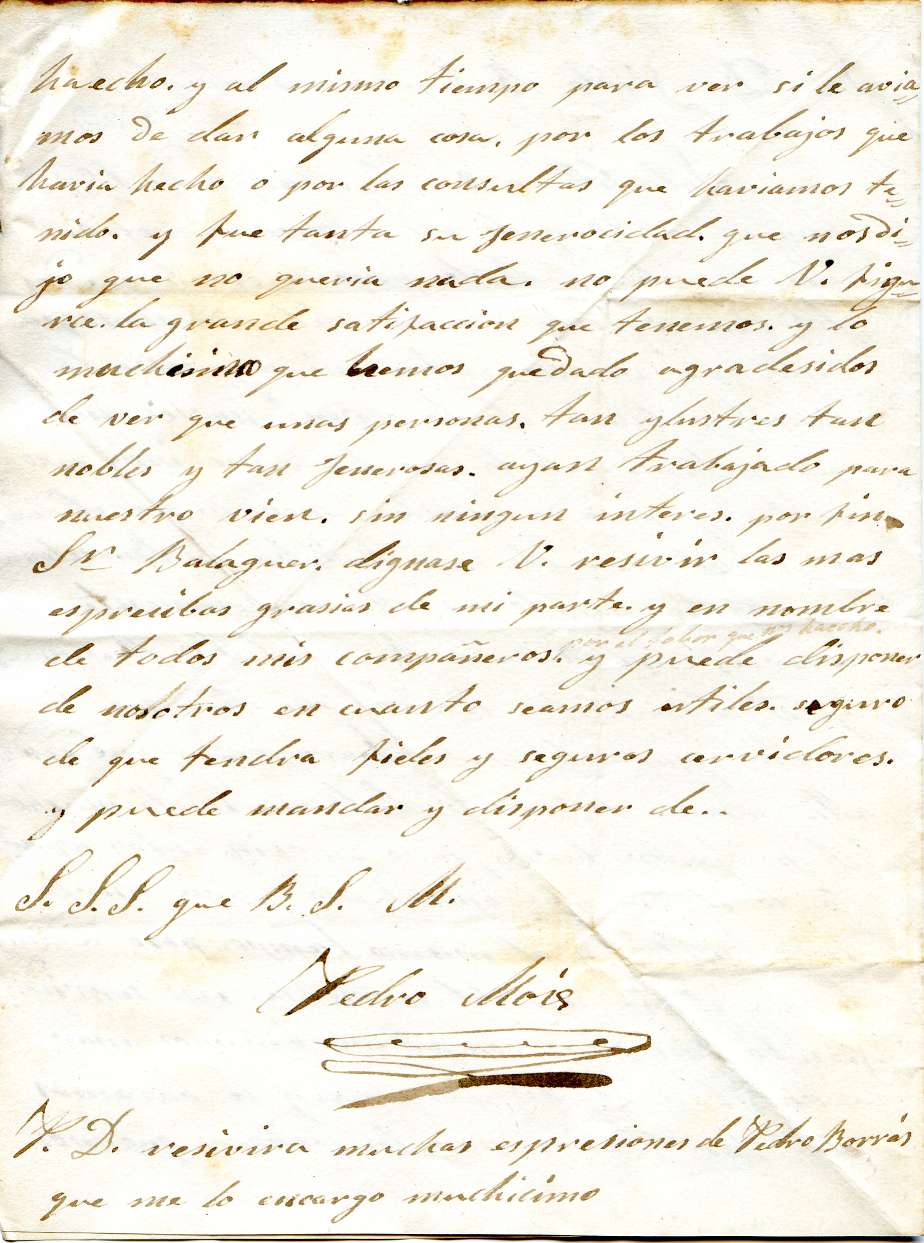 haecho. y al mismo tiempo para ver si le avia-
mos de dar alguna cosa. por los trabajos que
havia hecho o por las consultas que haviamos te-
nido. y fue tanta su Jenerocidad. que nos di-
jo que no queria nada. no puede V. figu-
rce. la grande satifaccion que tenemos. y lo
muchisimo que hemos quedado agradesidos
de ver que unas personas. tan ylustres tan
nobles y tan Jenerosas. ayan trabajado para
nuestro vien. sin ningun interes. por fin
Sr. Balaguer. dignase V. resivir las mas
espresibas grasias de mi parte. y en nombre
por el fabor que nos haecho.
de todos mis compañeros. y puede disponer
de nosotros en cuanto seamos utiles. seguro
de que tendra fieles y seguros cervidores.
y puede mandar y disponer de..
S. S. S. que B. S. M.
Pedro Mois
P. D. resivira muchas espresiones de Pedro Borrás
que me lo encargo muchicimo